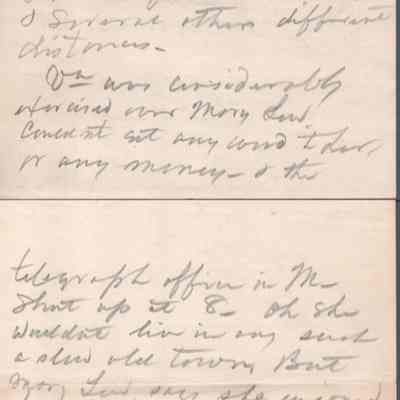 & several others different
distances -
Va was considerably
exercised over Mary Lew
Couldn't get any word to her,
or any money - & the
telegraph office in M -
Shut up at 8 - Oh she
wouldnt live in any such
a slow old town, But
Mary Lew says she enjoyed